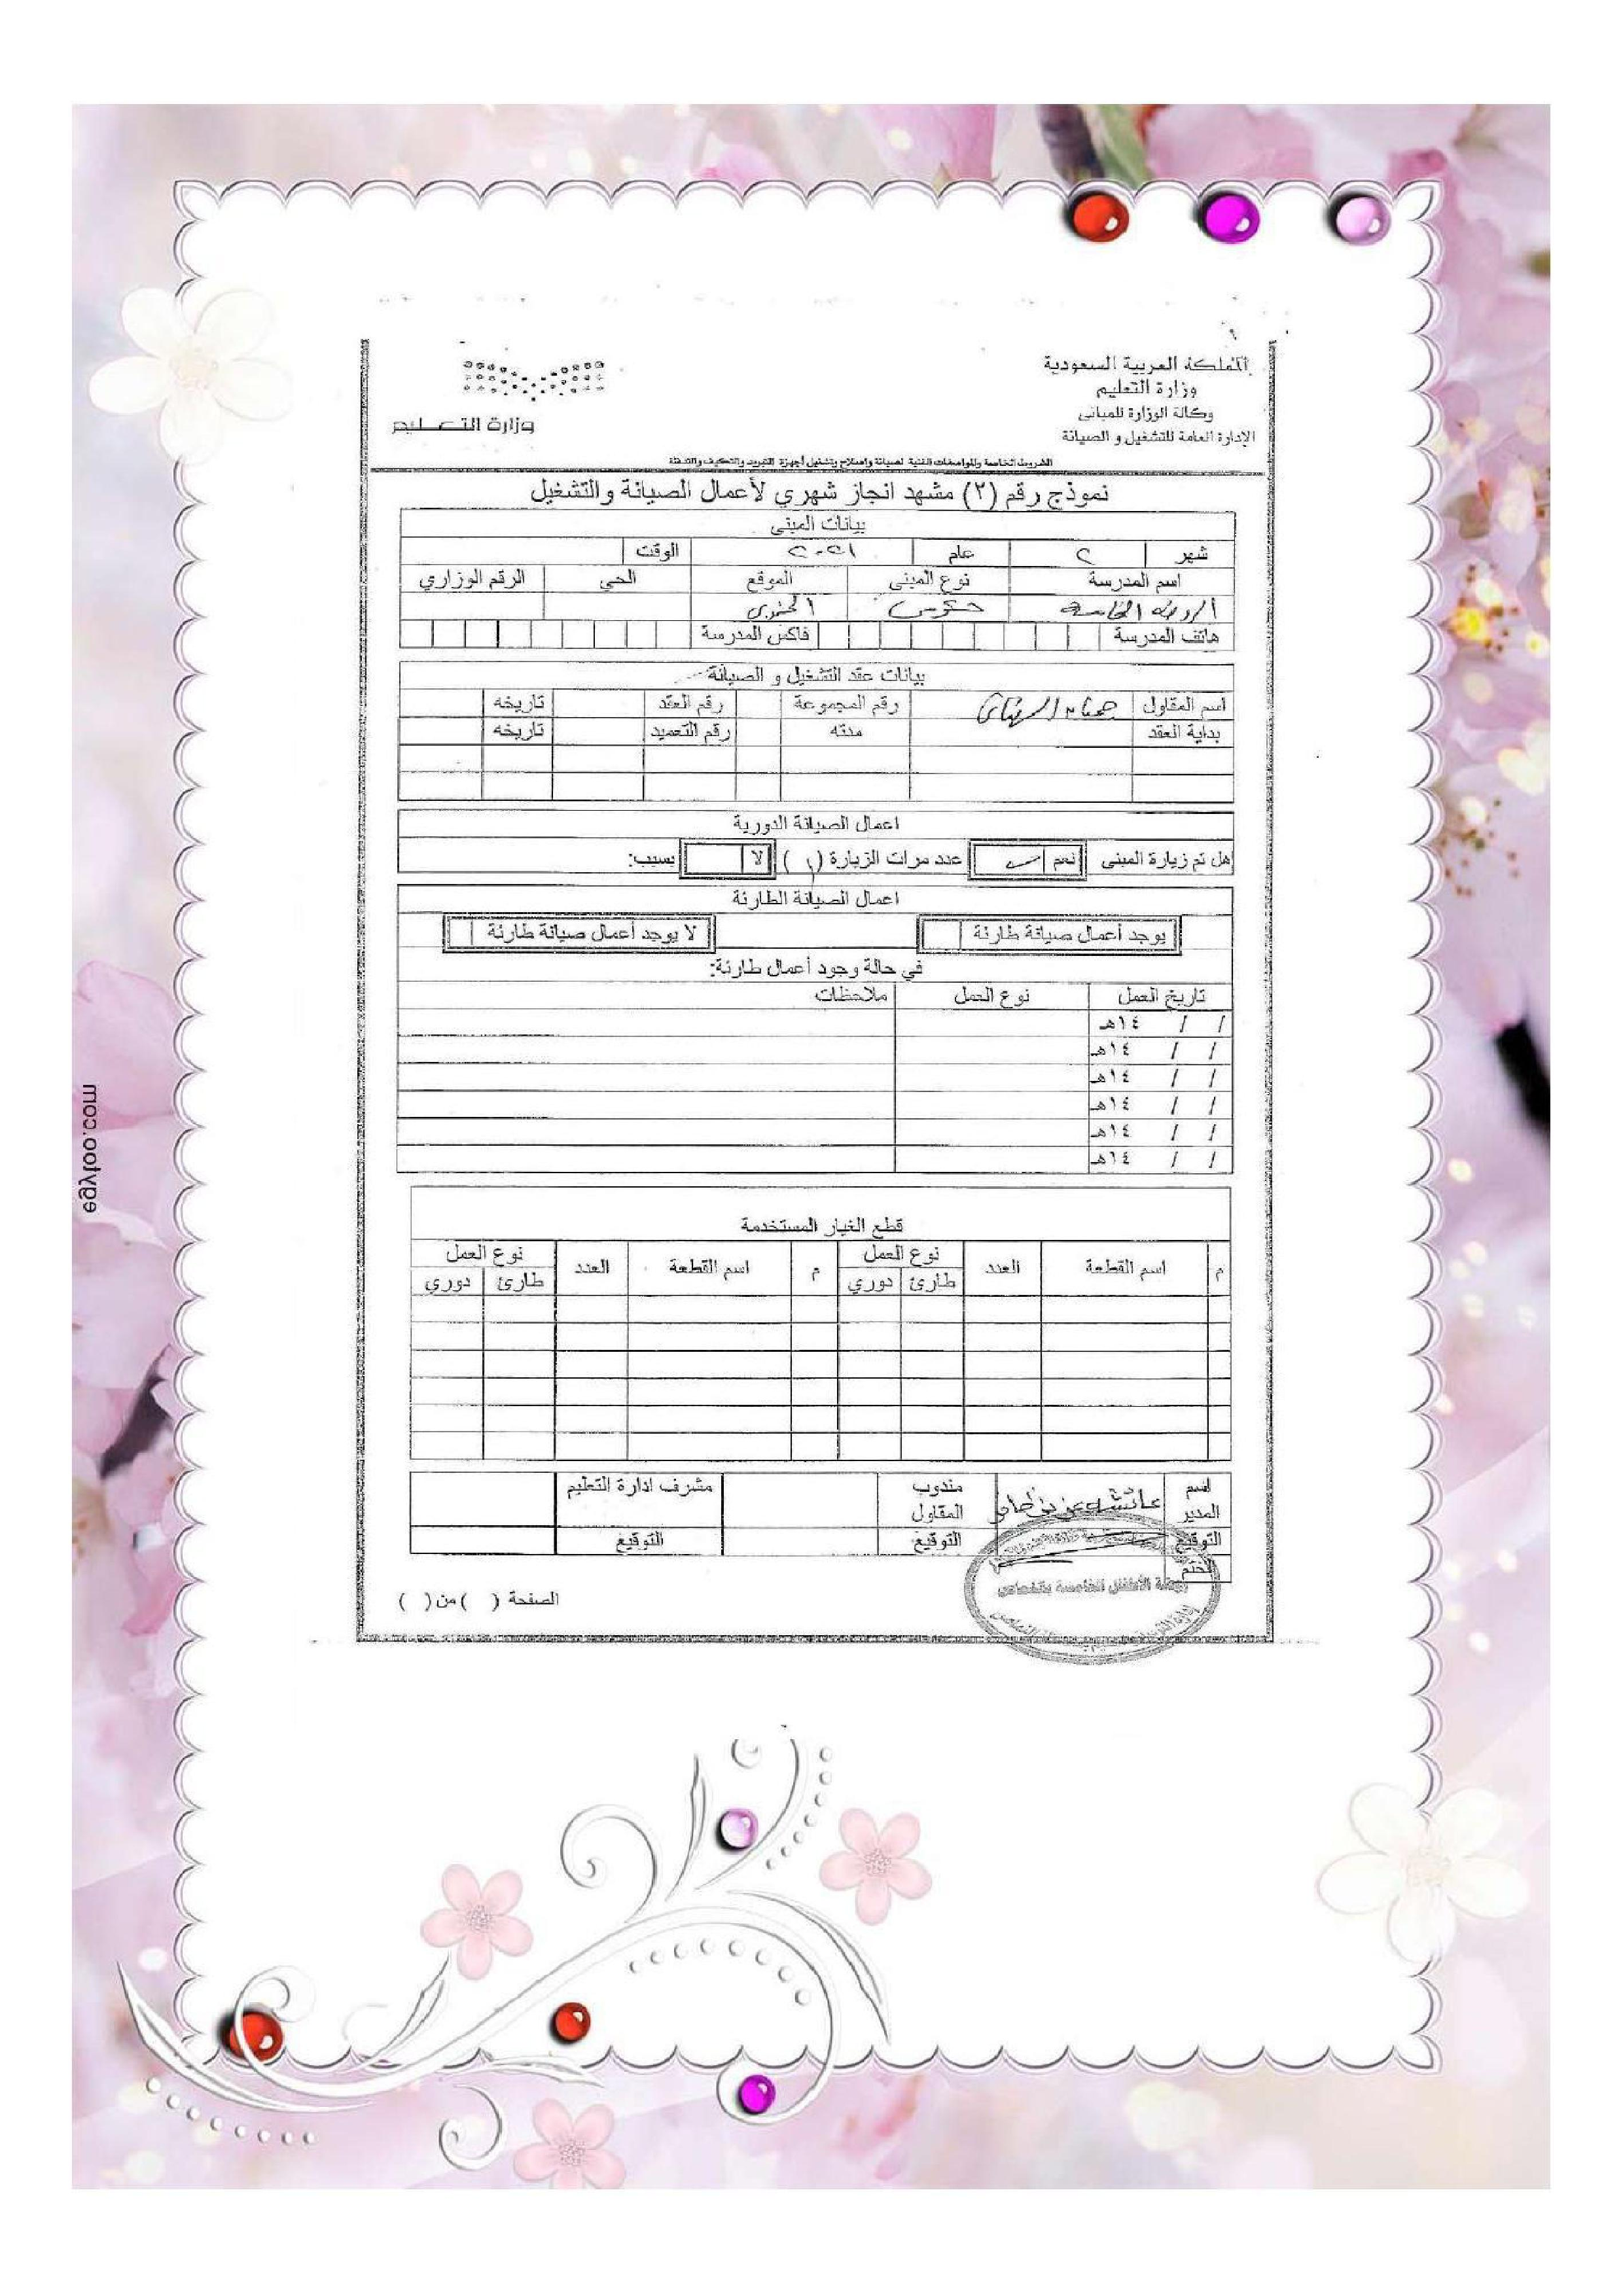 المملكة العربية السعودية
وزارة التعليم
وكالة الوزارة للمباني
الإدارة العامة للتشغيل و الصيانة
وزارة التعليم
الشروط الخاصة والمواصفات الفنية لصيانة وإصلاح وتشغيل أجهزة التبريد والتكييف والتدفئة
نموذج رقم (٢) مشهد انجاز شهري لأعمال الصيانة والتشغيل
بيانات المبنى
شهر ٢ عام ٢٠٢١ الوقت
اسم المدرسة نوع المبنى الموقع الحي الرقم الوزاري
الروضه الخامسة حكومي
هاتف المدرسة فاكس المدرسة
بيانات عقد التشغيل و الصيانة
اسم المقاول رقم المجموعة رقم العقد تاريخه
بداية العقد مدته رقم التعميد تاريخه
اعمال الصيانة الدورية
هل تم زيارة المبنى نعم عدد مرات الزيارة (١) لا بسبب:
اعمال الصيانة الطارئة
يوجد أعمال صيانة طارئة لا يوجد أعمال صيانة طارئة
في حالة وجود أعمال طارئة:
تاريخ العمل نوع العمل ملاحظات
/ / ١٤هـ
/ / ١٤هـ
/ / ١٤هـ
/ / ١٤هـ
/ / ١٤هـ
/ / ١٤هـ
قطع الغيار المستخدمة
م اسم القطعة العدد نوع العمل م اسم القطعة العدد نوع العمل
طارئ دوري طارئ دوري
اسم المدير مندوب المقاول مشرف ادارة التعليم
التوقيع التوقيع التوقيع
الختم
روضة الأطفال الخامسة
الصفحة ( ) من ( )
egyloo.com